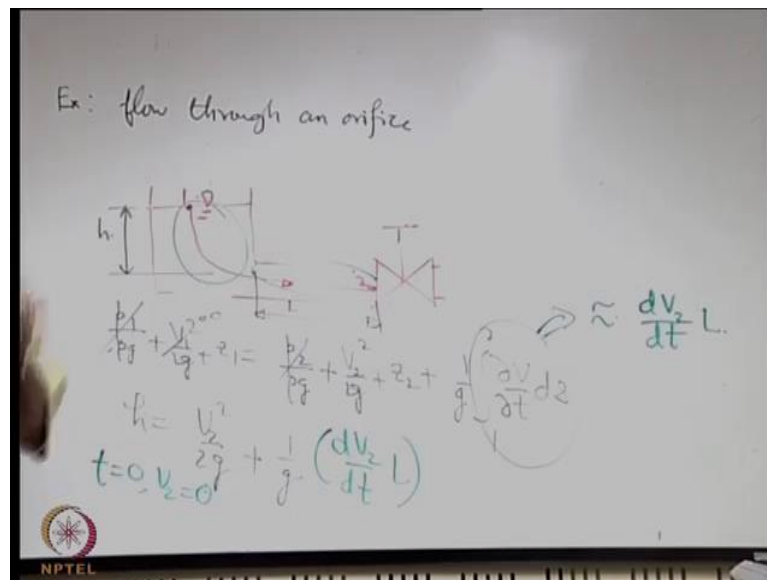 Ex: flow through an orifice
h
1
2
L
p₁/ρg + V₁²/2g + z₁ = p₂/ρg + V₂²/2g + z₂ + 1/g ∫₁² ∂V/∂t ds ⇒ ≈ dV₂/dt L.
h = V₂²/2g + 1/g (dV₂/dt L)
t=0, V₂=0
NPTEL